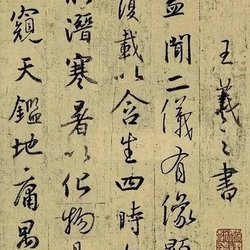 王羲之書
蓋聞二儀有像顯
覆載以含生四時
潛寒暑以化物是
窺天鑑地庸愚